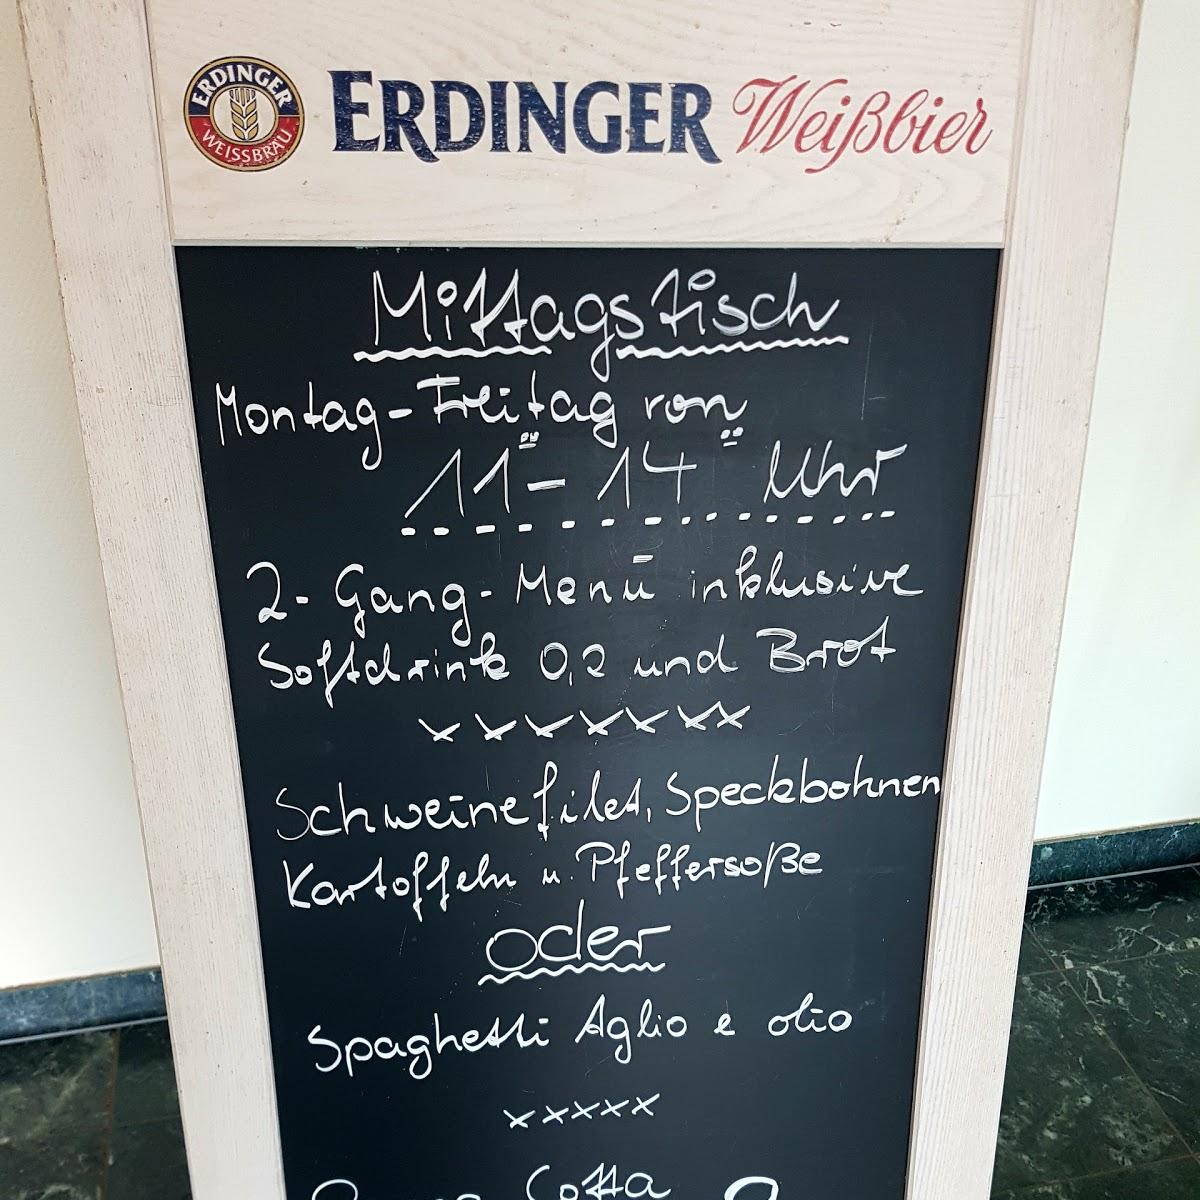 ERDINGER
WEISSBRÄU
ERDINGER Weißbier
Mittagstisch
Montag-Freitag von
11°° - 14°° Uhr
2-Gang-Menü inklusive
Softdrink 0,2 und Brot
x x x x x x x x
Schweinefilet, Speckbohnen
Kartoffeln u. Pfeffersoße
oder
Spaghetti Aglio e olio
x x x x x
Cotta